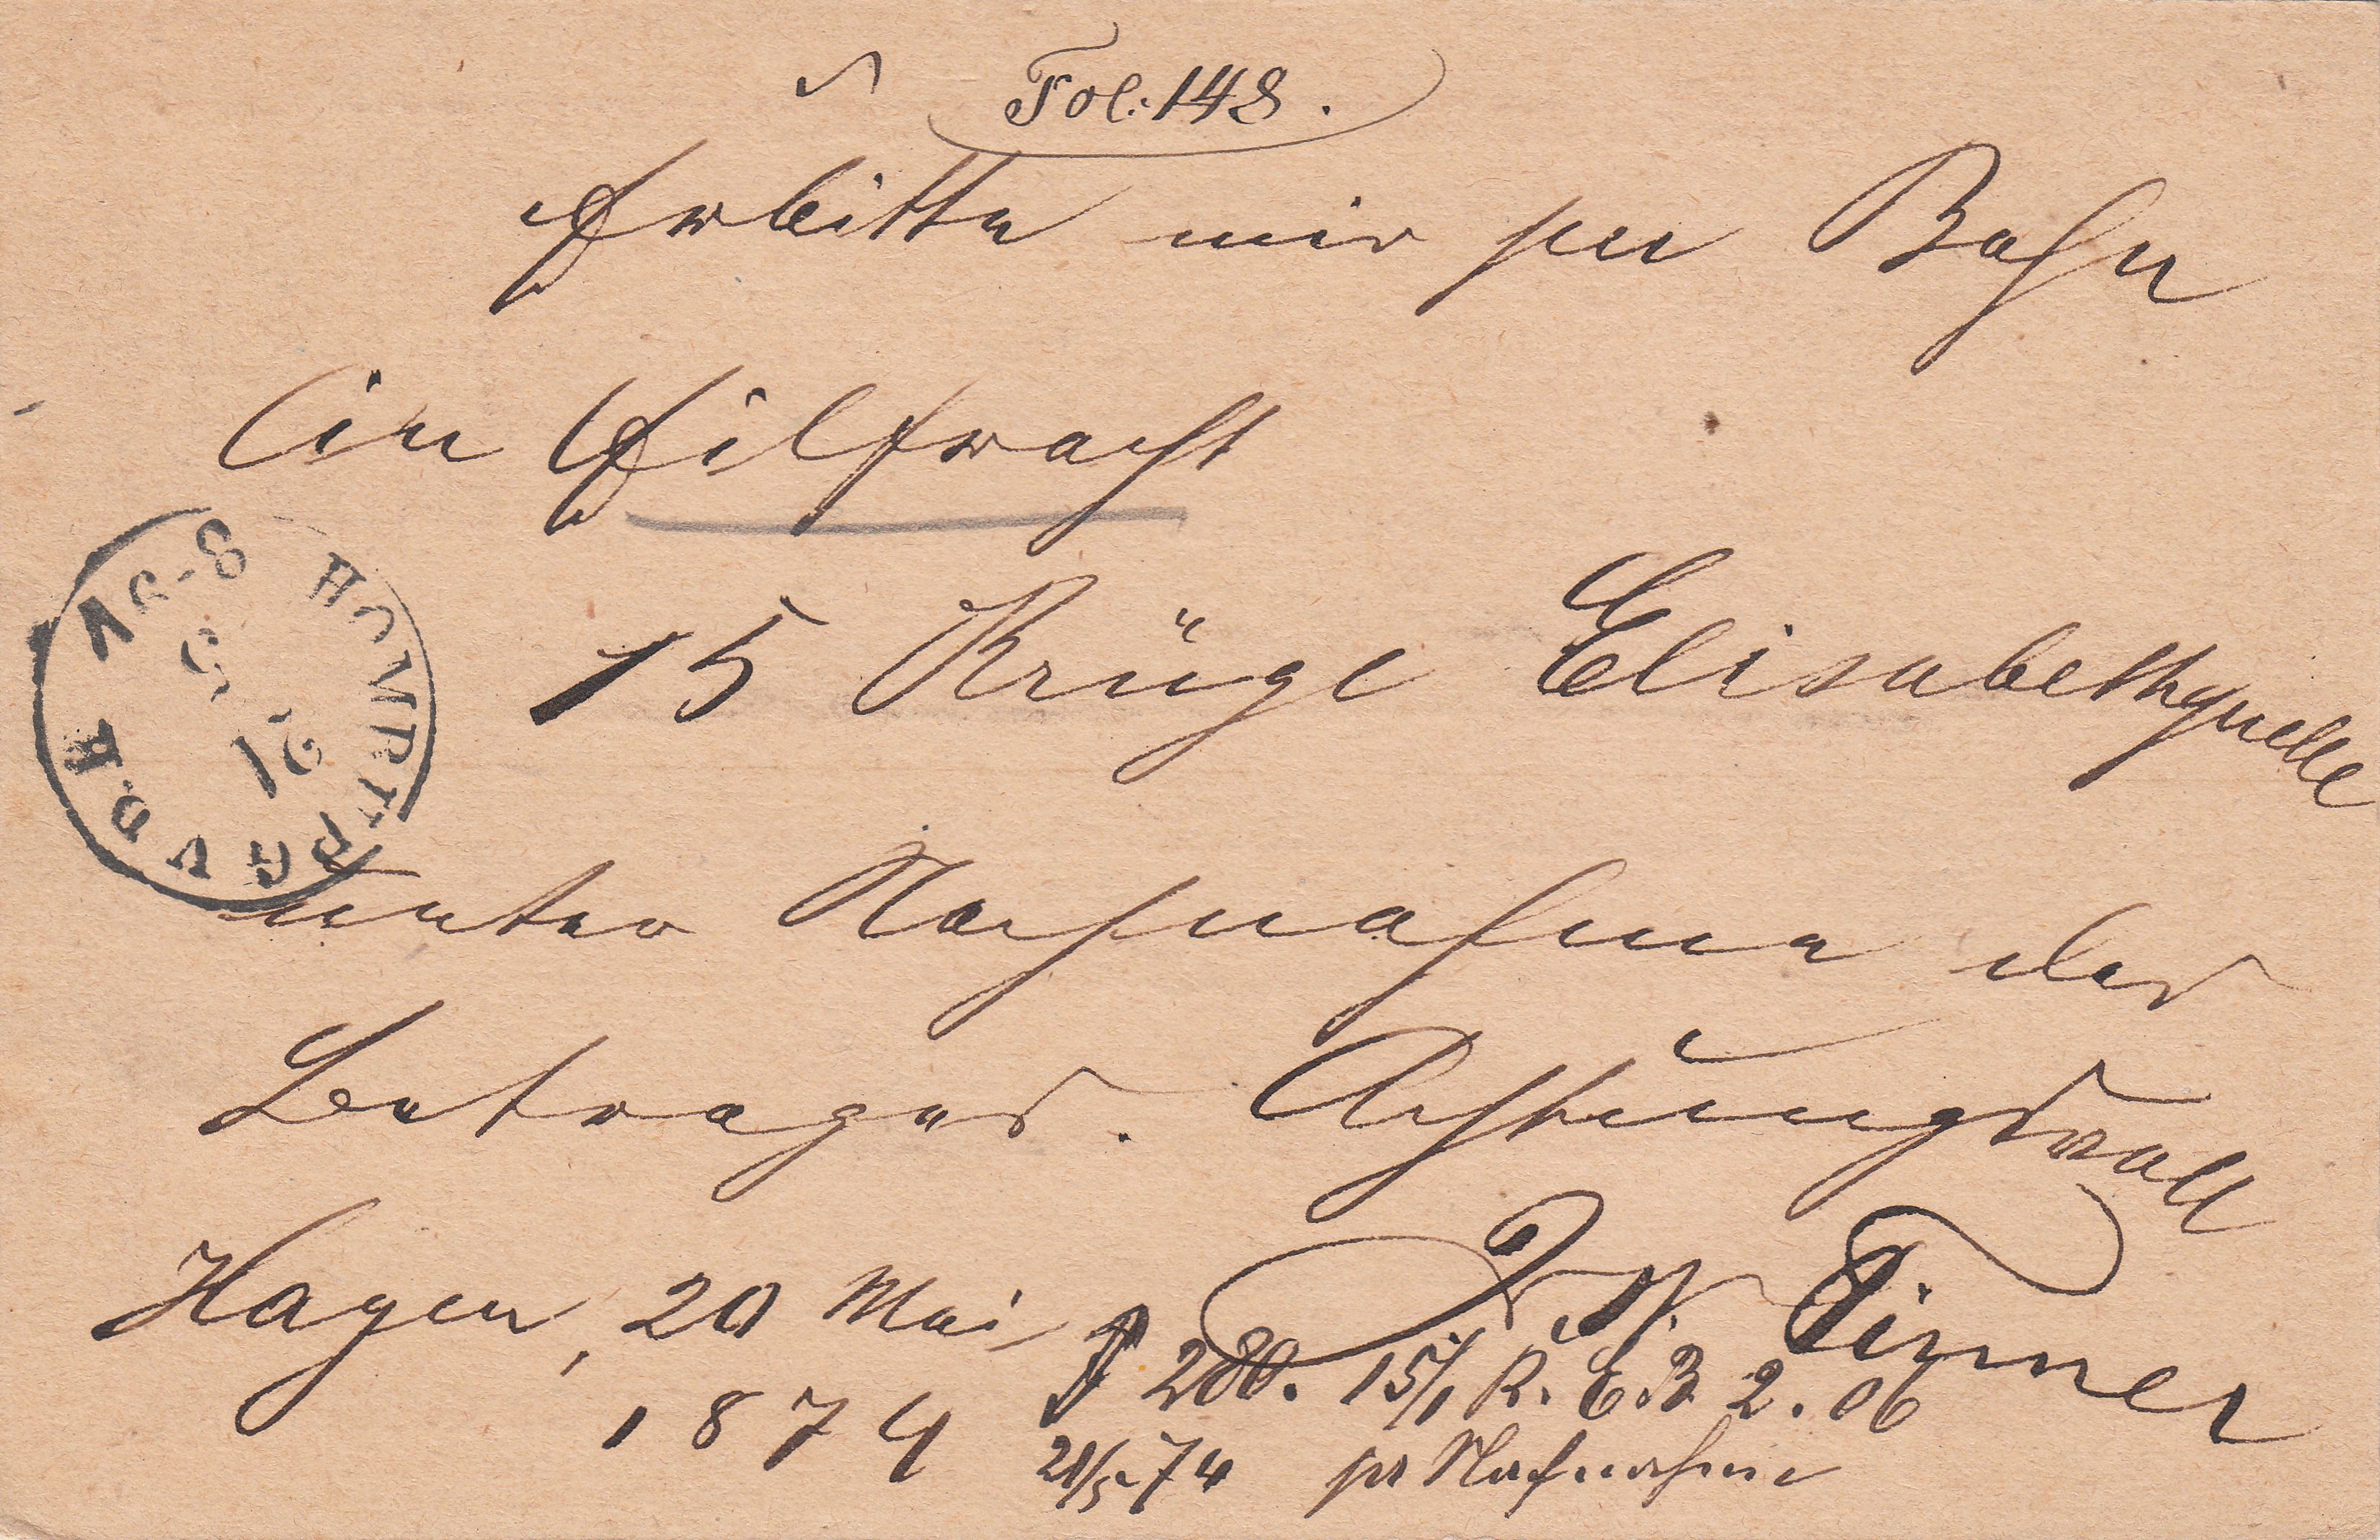 Fol: 148.
Erbitte mir per Bahn
Eilfracht
15 Krüge Elisabethquelle
unter Nachnahme des
Betrages. Achtungsvoll
Hagen, 20 Mai
1874
280. 15/1 K. E. B. 2. 06
21/5 74 pr Nachnahme
HOMBURG V.D.H.
21 5